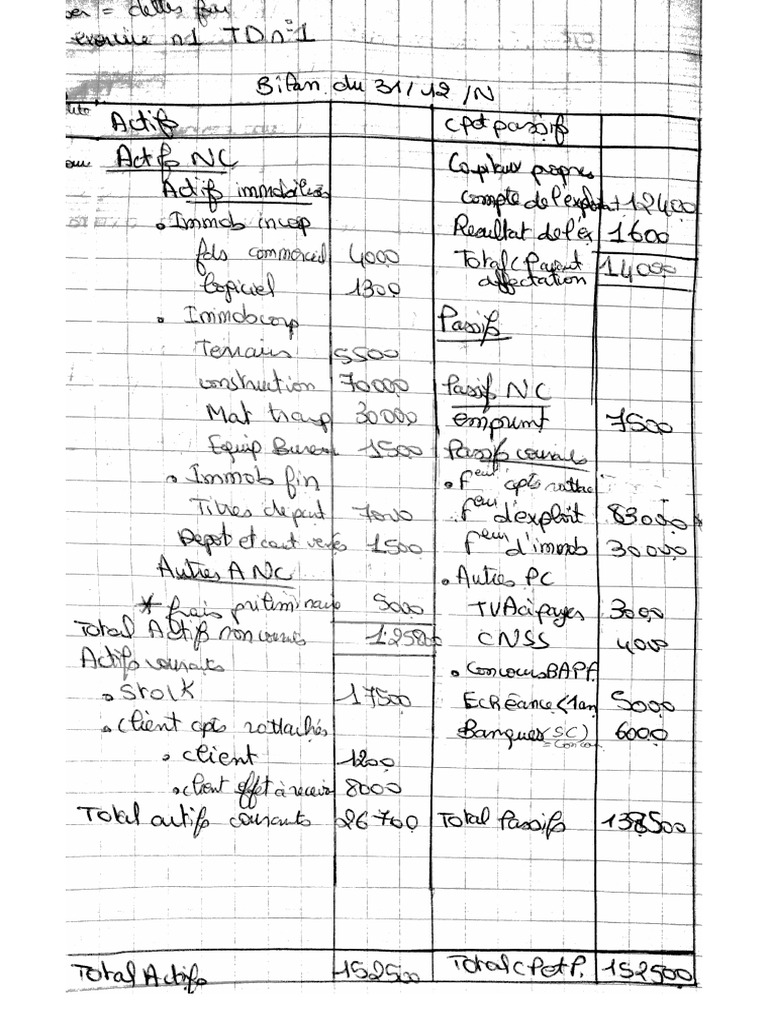 = dettes four
exercice n1 TD n°1
Bilan du 31/12/N
Actifs | Cp et passifs
Actifs NC | Capitaux propres
Actifs immobilisés | compte de l'exploit + 12400
• Immob incorp | Resultat de l'ex 1600
fds commercial 4000 | Total CP avant affectation 14000
logiciel 1300
• Immob corp | Passifs
Terrains 5500
construction 70000 | Passif NC
Mat transp 30000 | emprunt 7500
Equip Bureau 1500 | Passifs courants
• Immob fin | • feur cpts rattac
Titres de part 7000 | feur d'exploit 83000
Depot et caut versés 1500 | feur d'immob 30000
Autres ANC | • Autres PC
* frais préliminaire 5000 | TVA à payer 3000
Total Actifs non courants 125800 | CNSS 4000
Actifs courants | • Concours BAPF
• Stock 17500 | Echéance <1an 5000
• client cpts rattachés | Banques (SC) 6000
= concou
• client 1200
• client effet à recevoir 8000
Total actifs courants 26700 | Total Passifs 138500
Total Actifs 152500 | Total CP et P. 152500